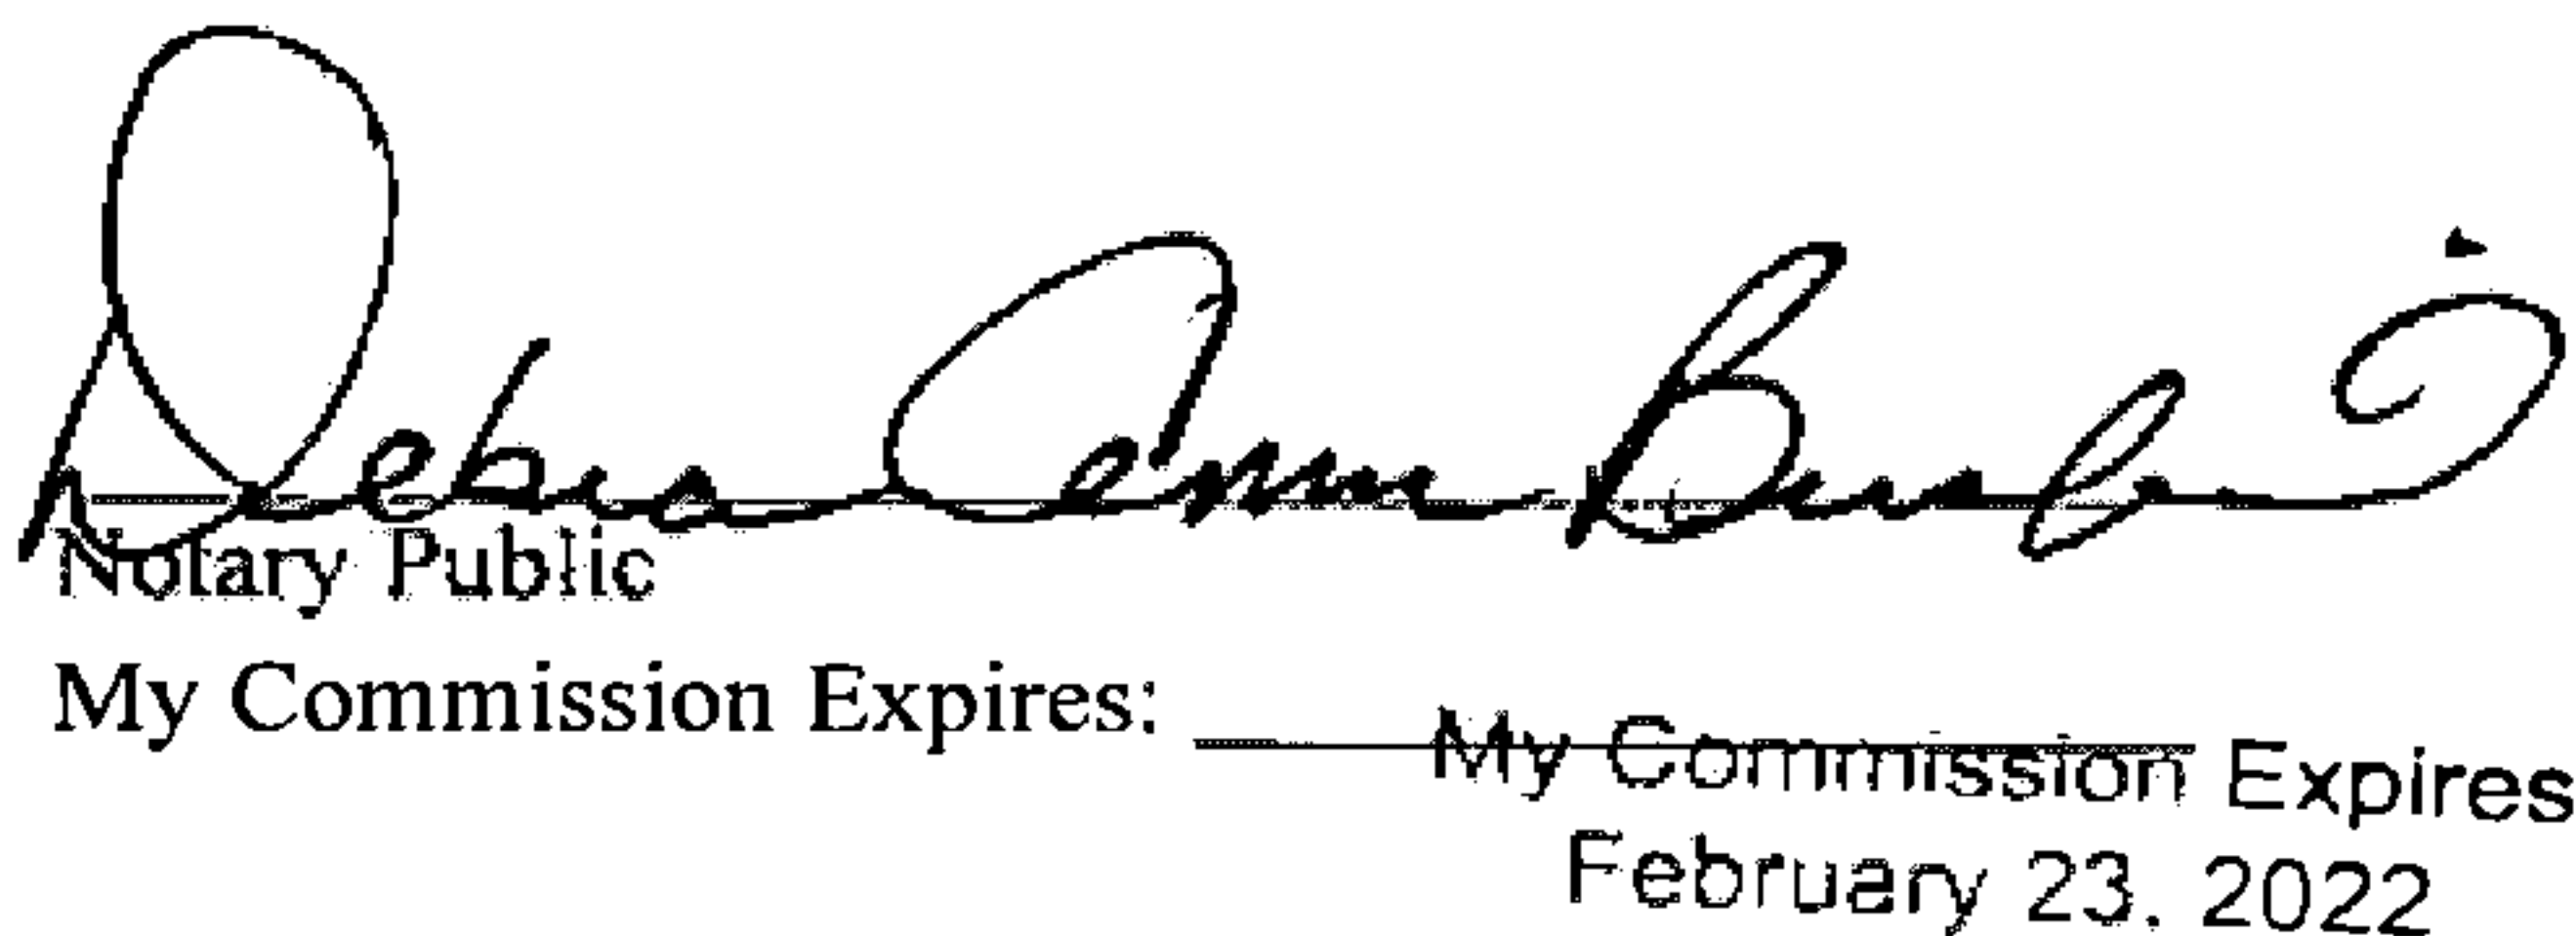 Debra Ann Bush
Notary Public
My Commission Expires:
My Commission Expires
February 23, 2022